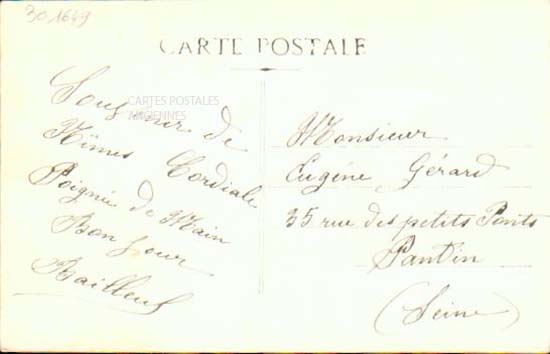 30 1649
CARTE POSTALE
CARTES POSTALES
ANCIENNES
Souvenir de
Nîmes Cordiale
Poignée de Main
Bonjour
Monsieur
Eugène Gérard
35 rue des petits Ponts
Pantin
(Seine)